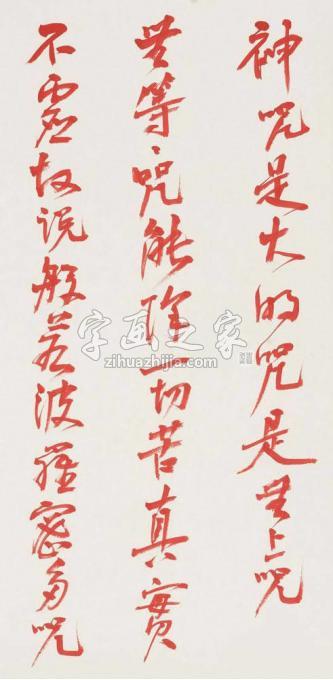 神咒是大明咒是无上咒
无等等咒能除一切苦真實
不虚故说般若波羅蜜多咒
字画之家
zihuazhijia.com